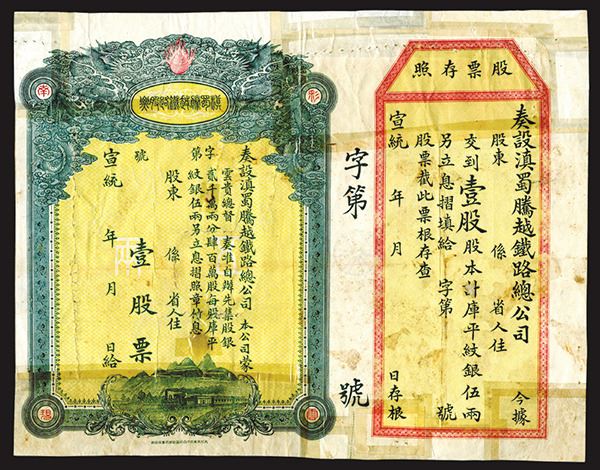 股票存照
奏設滇蜀騰越鐵路總公司 今據
股東 係 省人住
交到壹股股本計庫平紋銀伍兩
另立息摺填給 字第 號
股票截此票根存查
宣統 年 月 日存根
字第 號
南
奏設滇蜀騰越鐵路總公司 本公司蒙
雲貴總督 奏准自辦先集股銀
字貳千萬兩分肆百萬股每股庫平
第紋銀伍兩另立息摺照章付息
股東 係 省人住
號 壹股票
宣統 年 月 日給